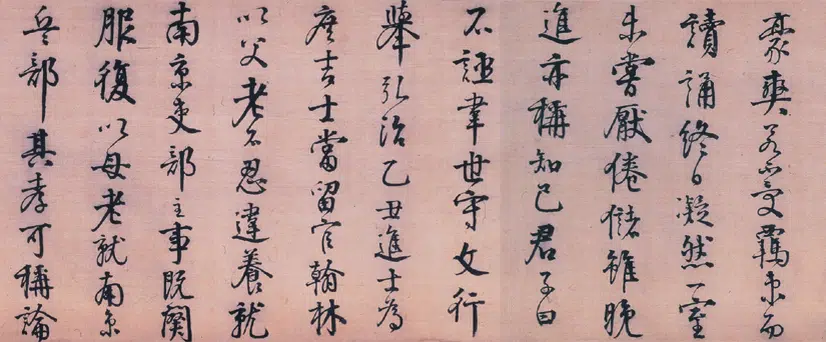 豪爽若不受羈束而
讀誦終日凝然一室
未嘗厭倦儲雖晚
進亦稱知己君子曰
不誣韋世守文行
舉弘治乙丑進士為
庶吉士當留官翰林
以父老不忍違養就
南京吏部主事既闋
服復以母老就南京
兵部其孝可稱論